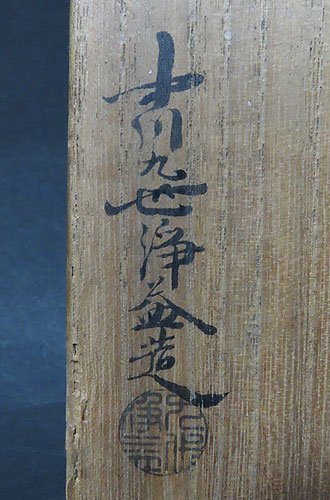 中川九世浄益造